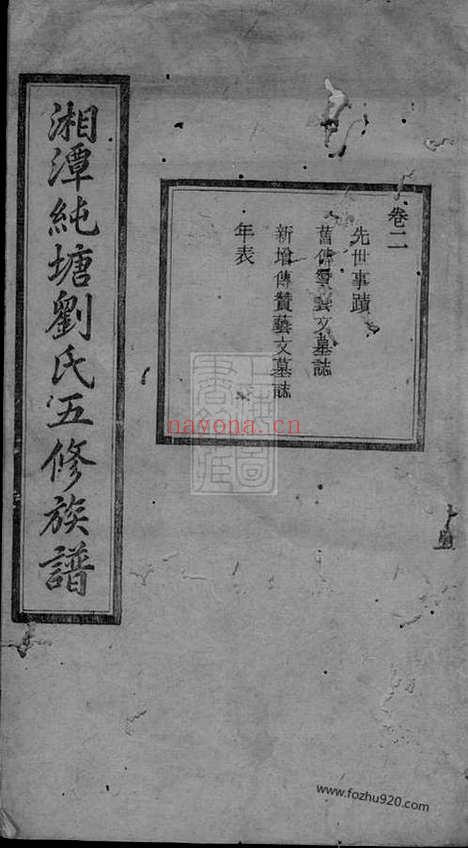 湘潭純塘劉氏五修族譜
卷二
先世事蹟
舊傳贊藝文墓誌
新增傳贊藝文墓誌
年表
上海圖書館藏
nayona.cn
www.fozhu920.com